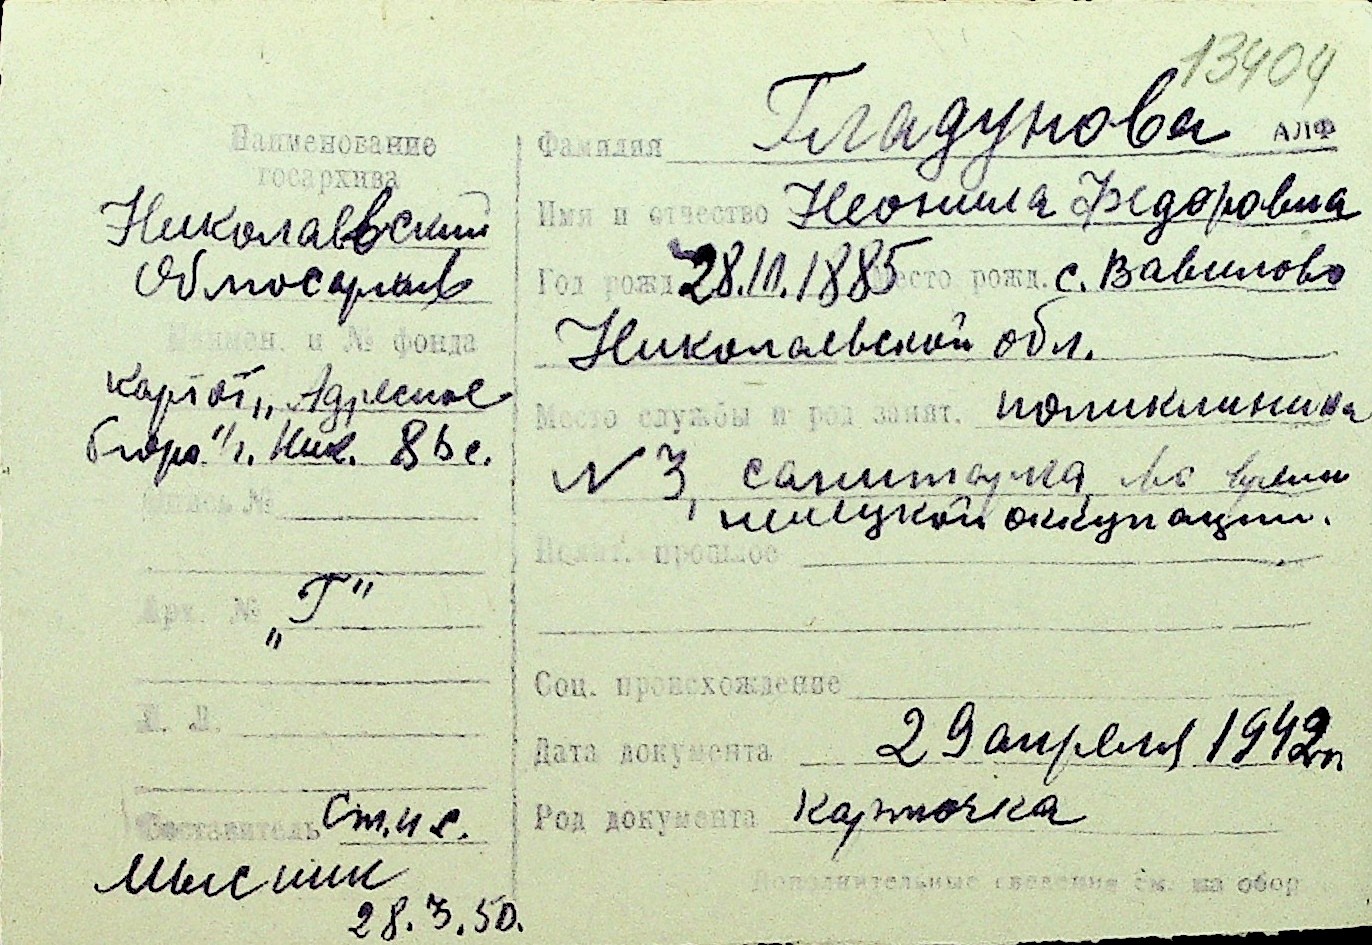 13404
Наименование
госархива
Николаевский
Облгосархив
Наимен. и № фонда
Картот. „Адресное
бюро" г. Ник.
Опись №
Арх. № „Г"
Л. Л.
Составитель Ст. н с.
Мысник
28.3.50.
Фамилия Гладунова АЛФ
Имя и отчество Неонила Федоровна
Год рожд. 28.10.1885 Место рожд. с. Вавилово
Николаевской обл.
Место службы и род занят. поликлиника
N 3, санитарка, во время
немецкой оккупации.
Полит. прошлое
Соц. происхождение
Дата документа 29 апреля 1942 г.
Род документа карточка
Дополнительные сведения см. на обор.